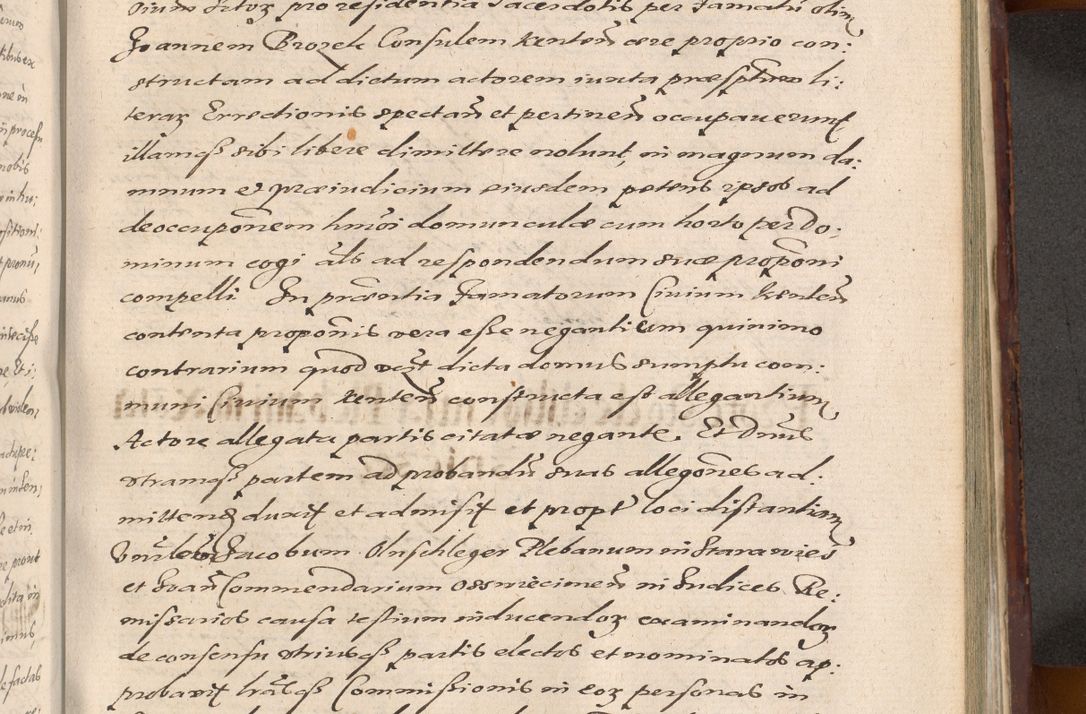 pro residentia Sacerdotis per Famatũ olim
Joannem Brozek Consulem Kenteñ aere proprio con:
structam ad dictum actorem iuxta praesptam li:
teraꝝ Errectionis spectañ et pertineñ occupauerunt
illamqȝ sibi libere dimittere nolunt, in magnum da:
mnum et praeiudicium eiusdem petens ipsos ad
deoccupõnem hmõi domunculae cum horto per Do:
minum cogi als ad respondendum suae propõni
compelli In prãentia Famatorum Civium Kenteñ
contenta propõnis vera esse negantium quinimo
contrarium quod dicta domus sumptu com:
muni Civium Kenteñ constructa est allegantium
Actore allegata partis citatae negante. Et Dñus
vtramqȝ partem ad probandũ suas allegõnes ad:
mittend duxit et admisit et propt loci distantiam
Jacobum Olnschleger Plebanum in Starawieś
et Joañ Commendarium Osswiecimeñ in Iudices Re:
missarios causa testium inducendoꝝ examinandoꝝ
de consensu vtriusqȝ partis electos et nominatos ap:
probavit Commissionis in eoꝝ personas in